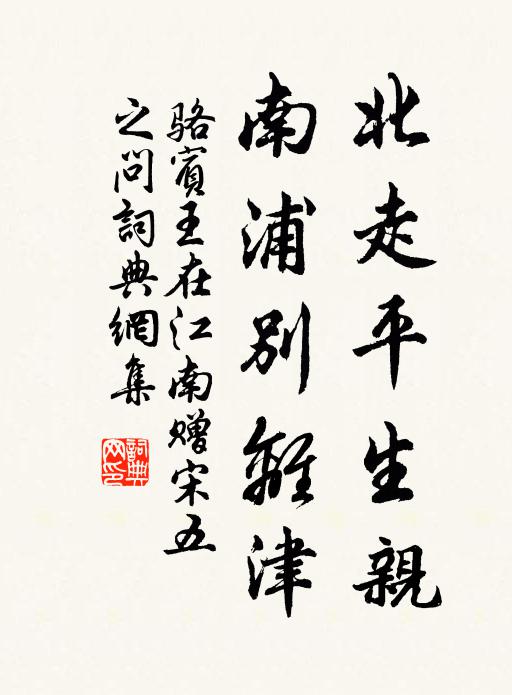 北走平生親
南浦別離津
骆賓王在江南赠宋五
之问詞典網集
詞典
网印